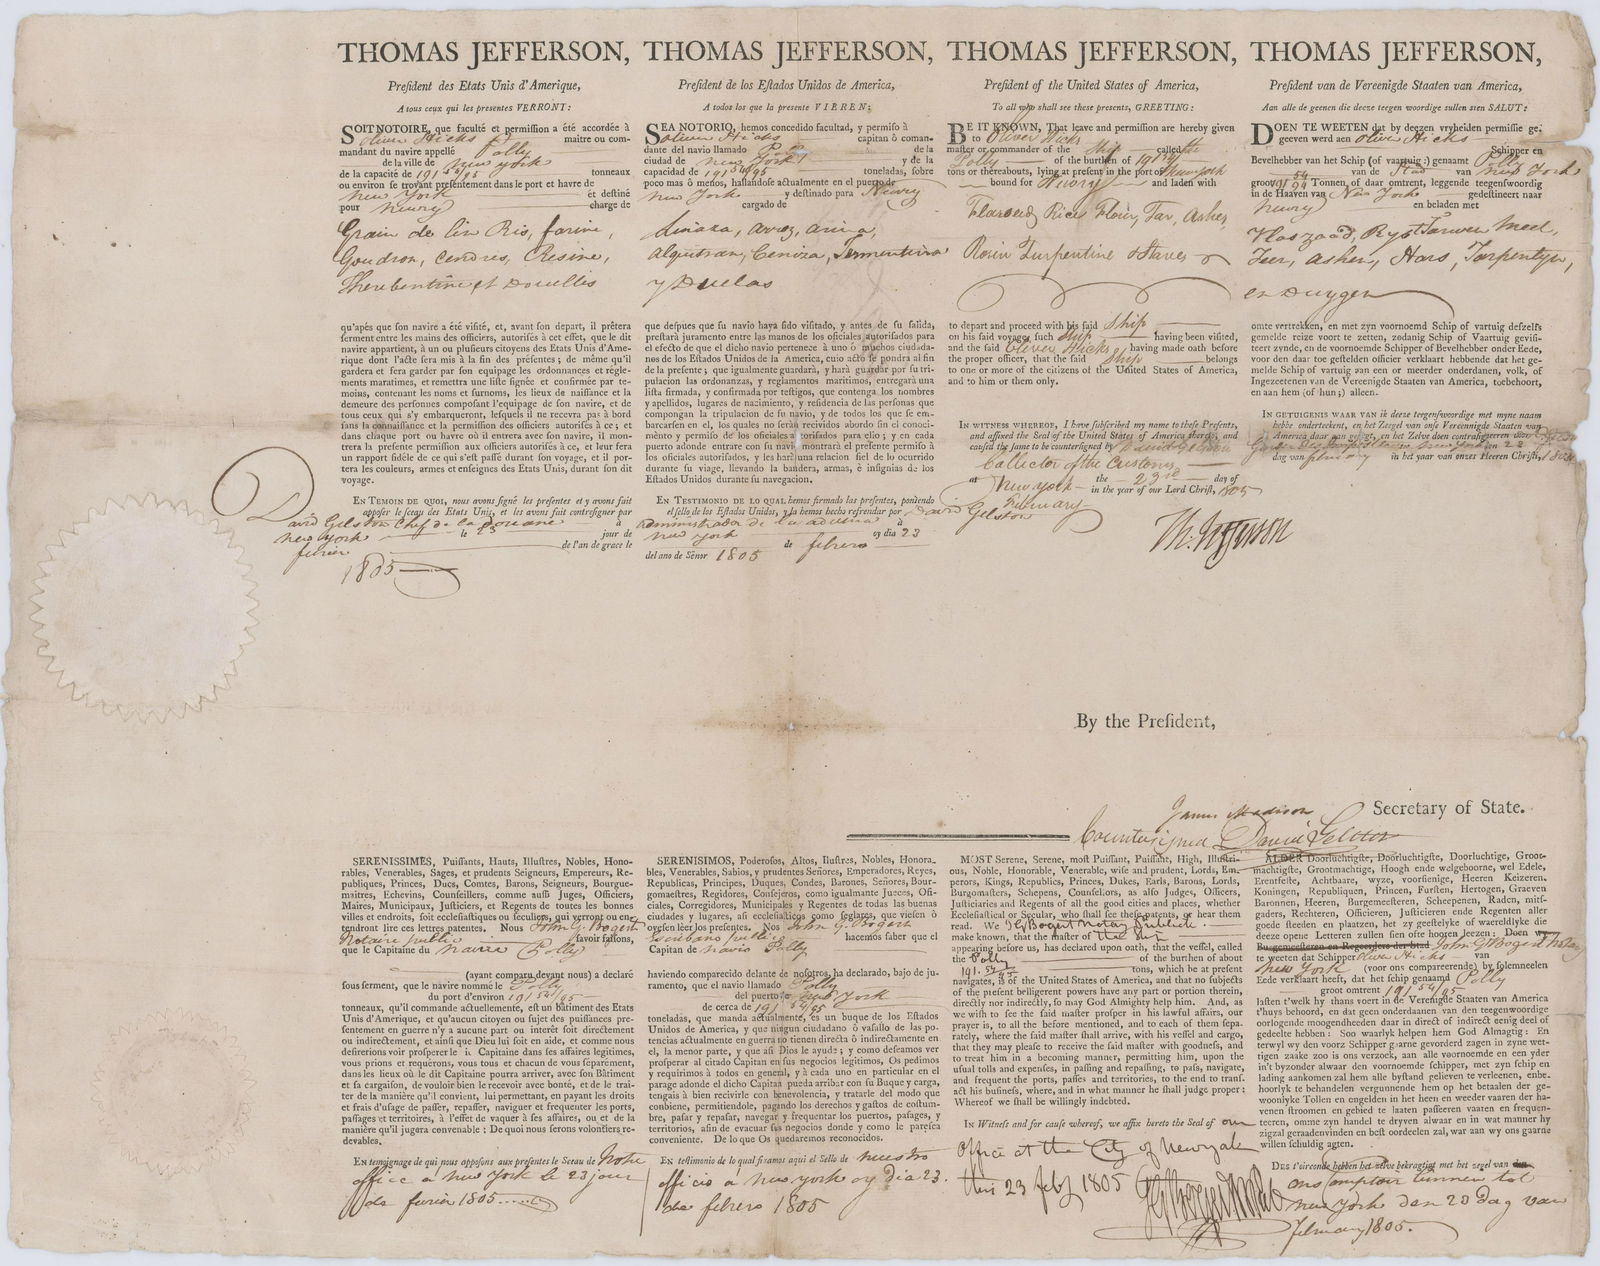 THOMAS JEFFERSON,
Preſident des Etats Unis d'Amerique,
A tous ceux qui les presentes VERRONT:
SOIT NOTOIRE, que faculté et permiſſion a été accordée à
Oliver Hicks maitre ou com-
mandant du navire appellé Polly
de la ville de New York
de la capacité de 191 54/95 tonneaux
ou environ ſe trovant preſentement dans le port et havre de
New York et deſtiné
pour Newry charge de
Grain de lin Ris, farine,
Goudron, Cendres, Resine,
Therebentine et Douelles
qu'apés que ſon navire a été viſité, et, avant ſon depart, il prêtera
ſerment entre les mains des officiers, autoriſés à cet effet, que le dit
navire appartient, à un ou pluſieurs citoyens des Etats Unis d'Ame-
rique dont l'acte ſera mis à la fin des préſentes; de même qu'il
gardera et fera garder par ſon equipage les ordonnances et régle-
ments maratimes, et remettra une liſte ſignée et confirmée par te-
moins, contenant les noms et ſurnoms, les lieux de naiſſance et la
demeure des perſonnes compoſant l'equipage de ſon navire, et de
tous ceux qui s'y embarqueront, leſquels il ne recevra pas à bord
ſans la connaiſſance et la permiſſion des officiers autoriſés à ce; et
dans chaque port ou havre où il entrera avec ſon navire, il mon-
trera la preſente permiſſion aux officiers autoriſés à ce, et leur fera
un rapport fidéle de ce qui s'eſt paſſé durant ſon voyage, et il por-
tera les couleurs, armes et enseignes des Etats Unis, durant ſon dit
voyage.
EN TEMOIN DE QUOI, nous avons ſigné les preſentes et y avons fait
appoſer le ſceau des Etats Unis, et les avons fait contreſigner par
David Gelston Chef de la Douane à
New York le 23 jour de
fevrier de l'an de grace le
1805
THOMAS JEFFERSON,
Preſident de los Eſtados Unidos de America,
A todos los que la presente VIEREN:
SEA NOTORIO, hemos concedido facultad, y permiſo à
Oliver Hicks capitan ô coman-
dante del navio llamado Polly de la
ciudad de New York y de la
capacidad de 191 54/95 toneladas, sobre
poco mas ô menos, hallandoſe actualmente en el puerto de
New York y deſtinado para Newry
cargado de
Linaza, arroz, arina,
Alquitran, Ceniza, Trementina
y Duelas
que deſpues que ſu navio haya ſido viſitado, y antes de ſu ſalida,
preſtará juramento entre las manos de los oficiales autoriſados para
el efecto de que el dicho navio pertenece à uno ô muchos ciudada-
nos de los Eſtados Unidos de la America, cuio acto ſe pondra al fin
de la preſente; que igualmente guardarà, y harà guardar por ſu tri-
pulacion las ordonanzas, y reglamentos maritimos, entregarà una
liſta firmada, y confirmada por teſtigos, que contenga los nombres
y apellidos, lugares de nacimiento, y reſidencia de las perſonas que
compongan la tripulacion de ſu navio, y de todos los que ſe em-
barcarſen en el, los quales no ſeràn recividos abordo ſin el conoci-
miento y permiſo de los oficiales autoriſados para ello; y en cada
puerto adonde entrare con ſu navio moſtrarà el preſente permiſo à
los oficiales autoriſados, y les harà una relacion fiel de lo ocurrido
durante ſu viage, llevando la bandera, armas, è inſignias de los
Eſtados Unidos durante ſu navegacion.
EN TESTIMONIO DE LO QUAL hemos firmado las preſentes, poniendo
el ſello de los Eſtados Unidos, y la hemos hecho refrendar por David Gelston
administrador de la aduena à
New York oy dia 23
de febrero
del ano de Sènor 1805
THOMAS JEFFERSON,
Preſident of the United States of America,
To all who shall see these presents, GREETING:
BE IT KNOWN, That leave and permiſſion are hereby given
to Oliver Hicks
maſter or commander of the Ship called the
Polly of the burthen of 191 54/95
tons or thereabouts, lying at preſent in the port of New York
bound for Newry and laden with
Flaxseed, Rice, Flour, Tar, Ashes,
Rosin Turpentine & Staves
to depart and proceed with his ſaid Ship
on his ſaid voyage, ſuch Ship having been viſited,
and the ſaid Oliver Hicks having made oath before
the proper officer, that the ſaid Ship belongs
to one or more of the citizens of the United States of America,
and to him or them only.
IN WITNESS WHEREOF, I have ſubſcribed my name to theſe Preſents,
and affixed the Seal of the United States of America thereto, and
cauſed the ſame to be counterſigned by David Gelston
Collector of the Customs
at New York the 23rd day of
February in the year of our Lord Chriſt, 1805
Th: Jefferson
THOMAS JEFFERSON,
Preſident van de Vereenigde Staaten van America,
Aan alle de geenen die deeze teegen woordige sullen sien SALUT:
DOEN TE WEETEN dat by deezen vryheiden permiſſie ge-
geeven werd aen Oliver Hicks
Schipper en
Bevelhebber van het Schip (of vaartuig:) genaamt Polly
van de Stad van New York
groot 191 54/94 Tonnen, of daar omtrent, leggende teegenſwoordig
in de Haaven van New York gedeſtineert naar
Newry en beladen met
Vlaszaad, Ryst Tarwen Meel,
Teer, Ashen, Hars, Terpentyn,
en Duygen
omte vertrekken, en met zyn voornoemd Schip of vartuig deſzelfs
gemelde reize voort te zetten, zodanig Schip of Vaartuig geviſi-
teert zynde, en de voornoemde Schipper of Bevelhebber onder Eede,
voor den daar toe geſtelden officier verklaart hebbende dat het ge-
melde Schip of vartuig aan een or meerder onderdanen, volk, of
Ingezeetenen van de Vereenigde Staaten van America, toebehoort,
en aan hem (of hun;) alleen.
IN GETUIGENIS WAAR VAN ik deeze teegenſwoordige met myne naam
hebbe onderteekent, en het Zeegel van onſe Vereenigde Staaten van
America daar aan gehegt, en het Zelve doen contraſigneeren door David
New York den 23
dag van February in het yaar van onzes Heeren Chriſti, 1805
By the Preſident,
James Madison Secretary of State.
Countersigned David Gelston
SERENISSIMES, Puiſſants, Hauts, Illuſtres, Nobles, Hono-
rables, Venerables, Sages, et prudents Seigneurs, Empereurs, Re-
publiques, Princes, Ducs, Comtes, Barons, Seigneurs, Bourgue-
maitres, Echevins, Counſeillers, comme auſſi Juges, Officiers,
Maires, Municipaux, Juſticiers, et Regents de toutes les bonnes
villes et endroits, ſoit eccleſiaſtiques ou ſeculiers, qui verront ou en-
tendront lire ces lettres patentes. Nous John G. Bogert
Notaire public ſavoir faiſons,
que le Capitaine du navire Polly
(ayant comparu devant nous) a declaré
ſous ſerment, que le navire nommé le Polly
du port d'environ 191 54/95
tonneaux, qu'il commande actuellement, eſt un bâtiment des Etats
Unis d'Amerique, et qu'aucun citoyen ou ſujet des puiſſances pre-
ſentement en guerre n'y a aucune part ou interêt ſoit directement
ou indirectement, et ainſi que Dieu lui ſoit en aide, et comme nous
deſirerions voir proſperer le dit Capitaine dans ſes affaires legitimes,
vous prions et requérons, vous tous et chacun de vous ſéparément,
dans les lieux où le dit Capitaine pourra arriver, avec ſon Bâtiment
et ſa cargaiſon, de vouloir bien le recevoir avec bonté, et de le trai-
ter de la manière qu'il convient, lui permettant, en payant les droits
et frais d'uſage de paſſer, repaſſer, naviguer et frequenter les ports,
paſſages et territoires, à l'effet de vaquer à ſes affaires, ou et de la
manière qu'il jugera convenable: De quoi nous ſerons volontiers re-
devables.
EN temoignage de qui nous oppoſons aux preſentes le Sceau de Notre
office a New York le 23 jour
de fevrier 1805
SERENISIMOS, Poderoſos, Altos, Iluſtres, Nobles, Honora-
bles, Venerables, Sabios, y prudentes Señores, Emperadores, Reyes,
Republicas, Principes, Duques, Condes, Barones, Señores, Bour-
gomeſtres, Regidores, Conſejeros, como igualmente Jueces, Ofi-
ciales, Corregidores, Municipales y Regentes de todas las buenas
ciudades y lugares, aſi eccleſiaſticos como ſeglares, que vieſen ô
oyeſen léer los preſentes. Nos John G. Bogert
Escribano public hacemos ſaber que el
Capitan de navio Polly
haviendo comparecido delante de noſotros, ha declarado, bajo de ju-
ramento, que el navio llamado Polly
del puerto New York
de cerca de 191 54/95
toneladas, que manda actualmente, es un buque de los Eſtados
Unidos de America, y que ningun ciudadano ô vaſallo de las po-
tencias actualmente en guerra no tienen directa ô indirectamente en
el, la menor parte, y que aſi Dios le ayude; y como deſeamos ver
proſperar al citado Capitan en ſus negocios legitimos, Os pedimos
y requirimos à todos en general, y à cada uno en particular en el
parage adonde el dicho Capitan pueda arribar con ſu Buque y carga,
tengais à bien recivirle con benevolencia, y tratarle del modo que
conbiene, permitiendole, pagando los derechos y gaſtos de coſtum-
bre, paſar y repaſar, navegar y frequentar los puertos, paſages, y
territorios, afin de evacuar ſus negocios donde y como le pareſca
conveniente. De lo que Os quedaremos reconocidos.
EN teſtimonio de lo qual firamos aqui el Sello de nuestro
officio a New York oy dia 23.
de febrero 1805
MOST Serene, Serene, moſt Puiſſant, Puiſſant, High, Illuſtri-
ous, Noble, Honorable, Venerable, wiſe and prudent, Lords, Em-
perors, Kings, Republics, Princes, Dukes, Earls, Barons, Lords,
Burgomaſters, Schepens, Counſellors, as alſo Judges, Officers,
Juſticiaries and Regents of all the good cities and places, whether
Eccleſiaſtical or Secular, who ſhall ſee theſe patents, or hear them
read. We J G Bogert Notary Public
make known, that the maſter of the Ship
appearing before us, has declared upon oath, that the veſſel, called
the Polly of the burthen of about
191. 54/95 tons, which be at preſent
navigates, is of the United States of America, and that no ſubjects
of the preſent belligerent powers have any part or portion therein,
directly nor indirectly, ſo may God Almighty help him. And, as
we wiſh to ſee the ſaid maſter proſper in his lawful affairs, our
prayer is, to all the before mentioned, and to each of them ſepa-
rately, where the ſaid maſter ſhall arrive, with his veſſel and cargo,
that they may pleaſe to receive the ſaid maſter with goodneſs, and
to treat him in a becoming manner, permitting him, upon the
uſual tolls and expenſes, in paſſing and repaſſing, to paſs, navigate,
and frequent the ports, paſſes and territories, to the end to tranſ-
act his buſineſs, where, and in what manner he ſhall judge proper:
Whereof we ſhall be willingly indebted.
IN Witneſs and for cauſe whereof, we affix hereto the Seal of our
Office at the City of New York
this 23 feby 1805
ALDER Doorluchtigſte, Doorluchtigſte, Doorluchtige, Groot-
machtigſte, Grootmachtige, Hoogh ende welgeboorne, wel Edele,
Erentfeſte, Achtbaare, wyze, voorſienige, Heeren Keizeren,
Koningen, Republiquen, Princen, Furſten, Hertogen, Graeven
Baronnen, Heeren, Burgemeeſteren, Scheepenen, Raden, mitſ-
gaders, Rechteren, Officieren, Juſticieren ende Regenten aller
goede ſteeden en plaatzen, het zy geeſtelyke of waereldlyke die
deeze opene Letteren zullen ſien ofte hooren leezen: Doen wy
Burgemeeſteren en Regeerders der ſtad John G Bogert Notary
te weeten dat Schipper Oliver Hicks van
New York (voor ons compareerende) by ſolemneelen
Eede verklaart heeft, dat het ſchip genaamd Polly
groot omtrent 191 54/95
laſten t'welk by thans voert in de Verenigde Staaten van America
t'huys behoord, en dat geen onderdaanen van den teegenwoordige
oorlogende moogendheeden daar in direct of indirect eenig deel of
gedeelte hebben: Soo waarlyk helpen hem God Almagtig: En
terwyl wy den voorz Schipper gaarne gevorderd zagen in zyne wet-
tigen zaake zoo is ons verzoek, aan alle voornoemde en een yder
in't byzonder alwaar den voornoemde ſchipper, met zyn ſchip en
lading aankomen zal hem alle byſtand gelieven te verleenen, enbe-
hoorlyk te behandelen vergunnende hem op het betaalen der ge-
woonlyke Tollen en engelden in het heen en weeder vaaren der ha-
venen ſtroomen en gebied te laaten paſſeeren vaaren en frequen-
teeren, omme zyn handel te dryven alwaar en in wat manner hy
zigzal geraadenvinden en beſt oordeelen zal, war aan wy ons gaarne
willen ſchuldig agten.
DES t'oirconde hebben het zelve bekragtigt met het zegel van den
ons Comptoir binnen tot
New York den 20 dag van
February 1805.